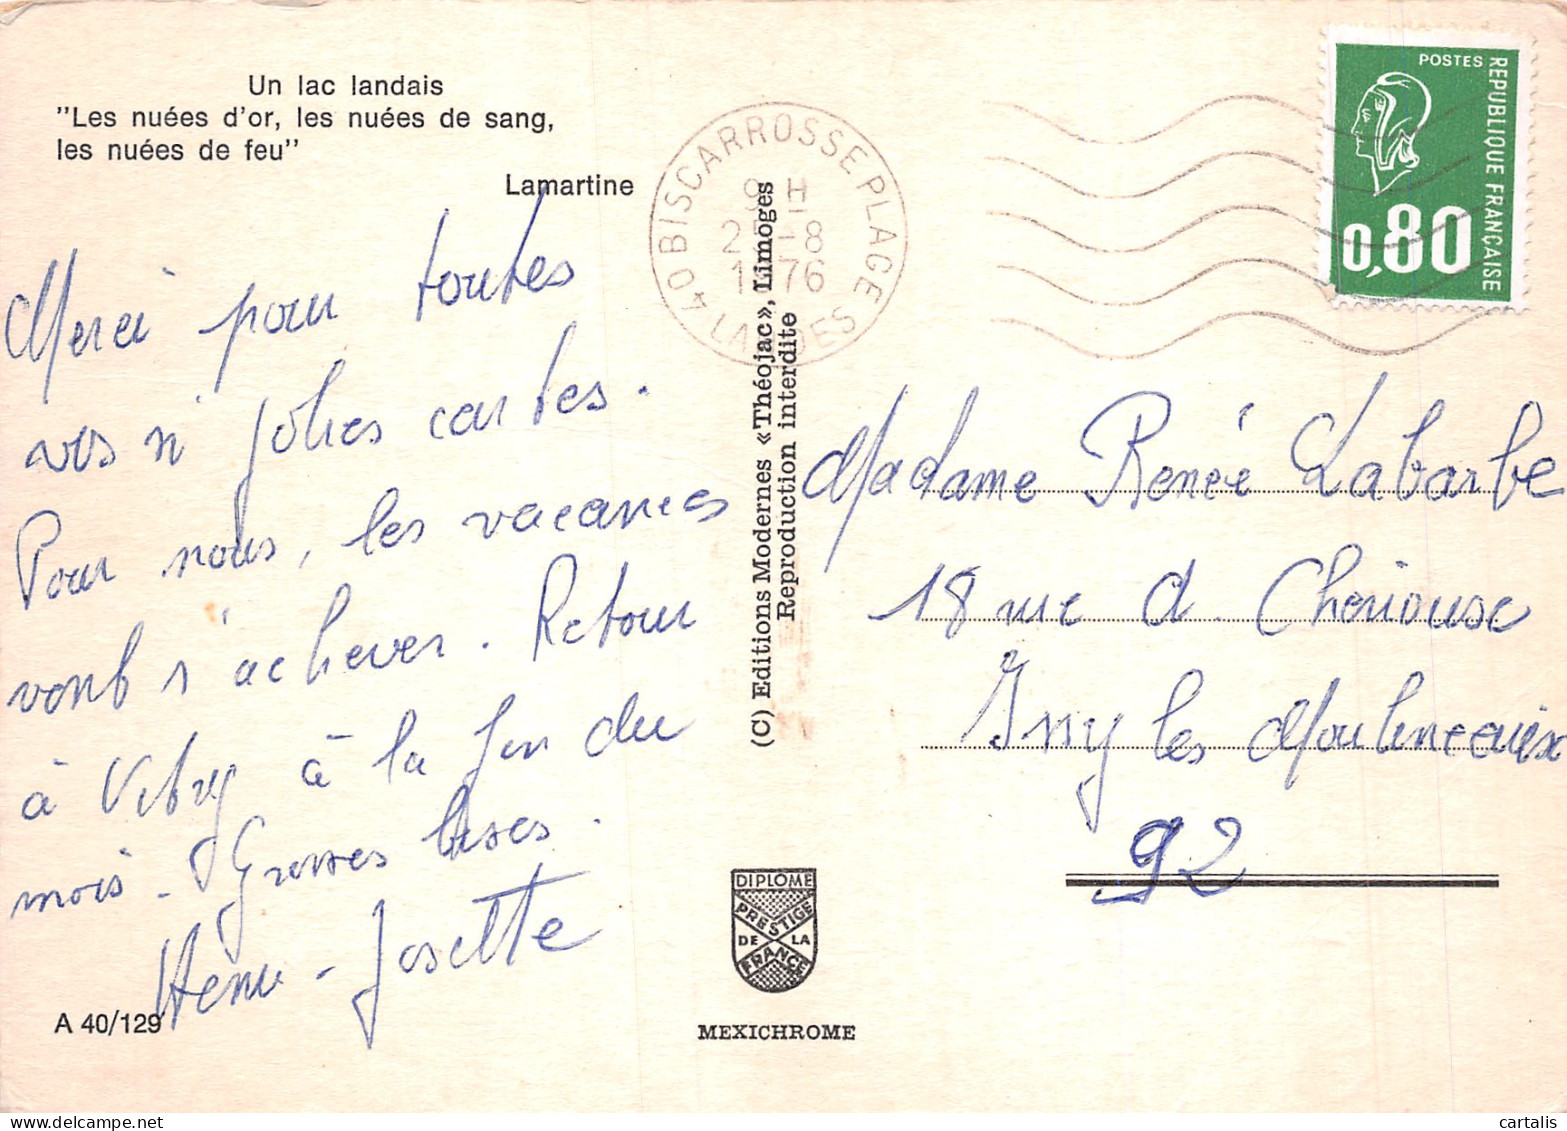 Un lac landais
"Les nuées d'or, les nuées de sang,
les nuées de feu"
Lamartine
Merci pour toutes
vos si jolies cartes.
Pour nous, les vacances
vont s'achever. Retour
à Vitry à la fin du
mois - Grosses bises.
Henri - Josette
A 40/129
40 BISCARROSSE PLAGE
9 H
-8
1976
LANDES
(C) Editions Modernes «Théojac», Limoges
Reproduction interdite
DIPLÔME
PRESTIGE
DE LA
FRANCE
MEXICHROME
POSTES
REPUBLIQUE FRANÇAISE
0,80
Madame Renée Labarbe
18 rue A. Cherioux
Issy les Moulineaux
92
cartalis